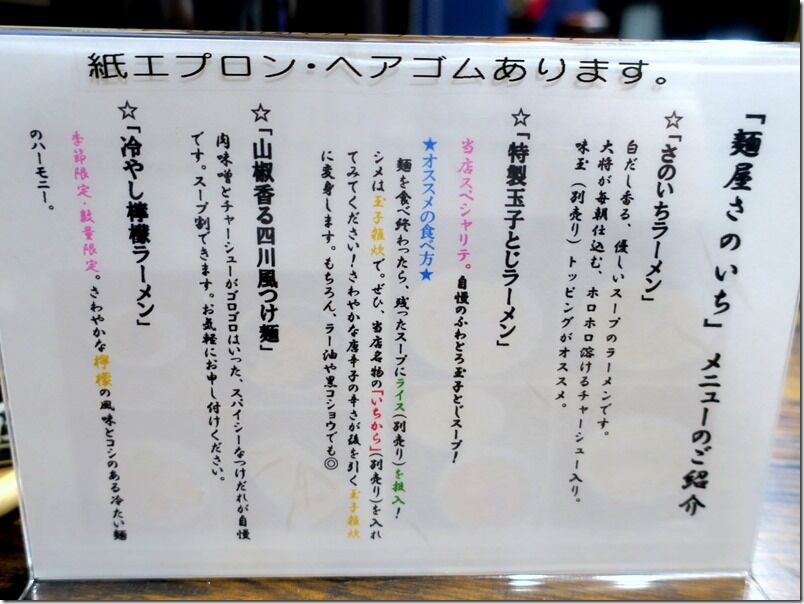 紙エプロン・ヘアゴムあります。
「麺屋さのいち」メニューのご紹介
☆「さのいちラーメン」
白だし香る、優しいスープのラーメンです。
大将が毎朝仕込む、ホロホロ溶けるチャーシュー入り。
味玉(別売り)トッピングがオススメ。
☆「特製玉子とじラーメン」
当店スペシャリテ。自慢のふわとろ玉子とじスープ!
★オススメの食べ方★
麺を食べ終わったら、残ったスープにライス(別売り)を投入!
シメは玉子雑炊で。ぜひ、当店名物の「いちから」(別売り)を入れ
てみてください!さわやかな唐辛子の辛さが後を引く玉子雑炊
に変身します。もちろん、ラー油や黒コショウでも◎
☆「山椒香る四川風つけ麺」
肉味噌とチャーシューがゴロゴロはいった、スパイシーなつけだれが自慢
です。スープ割できます。お気軽にお申し付けください。
☆「冷やし檸檬ラーメン」
季節限定・数量限定。さわやかな檸檬の風味とコシのある冷たい麺
のハーモニー。